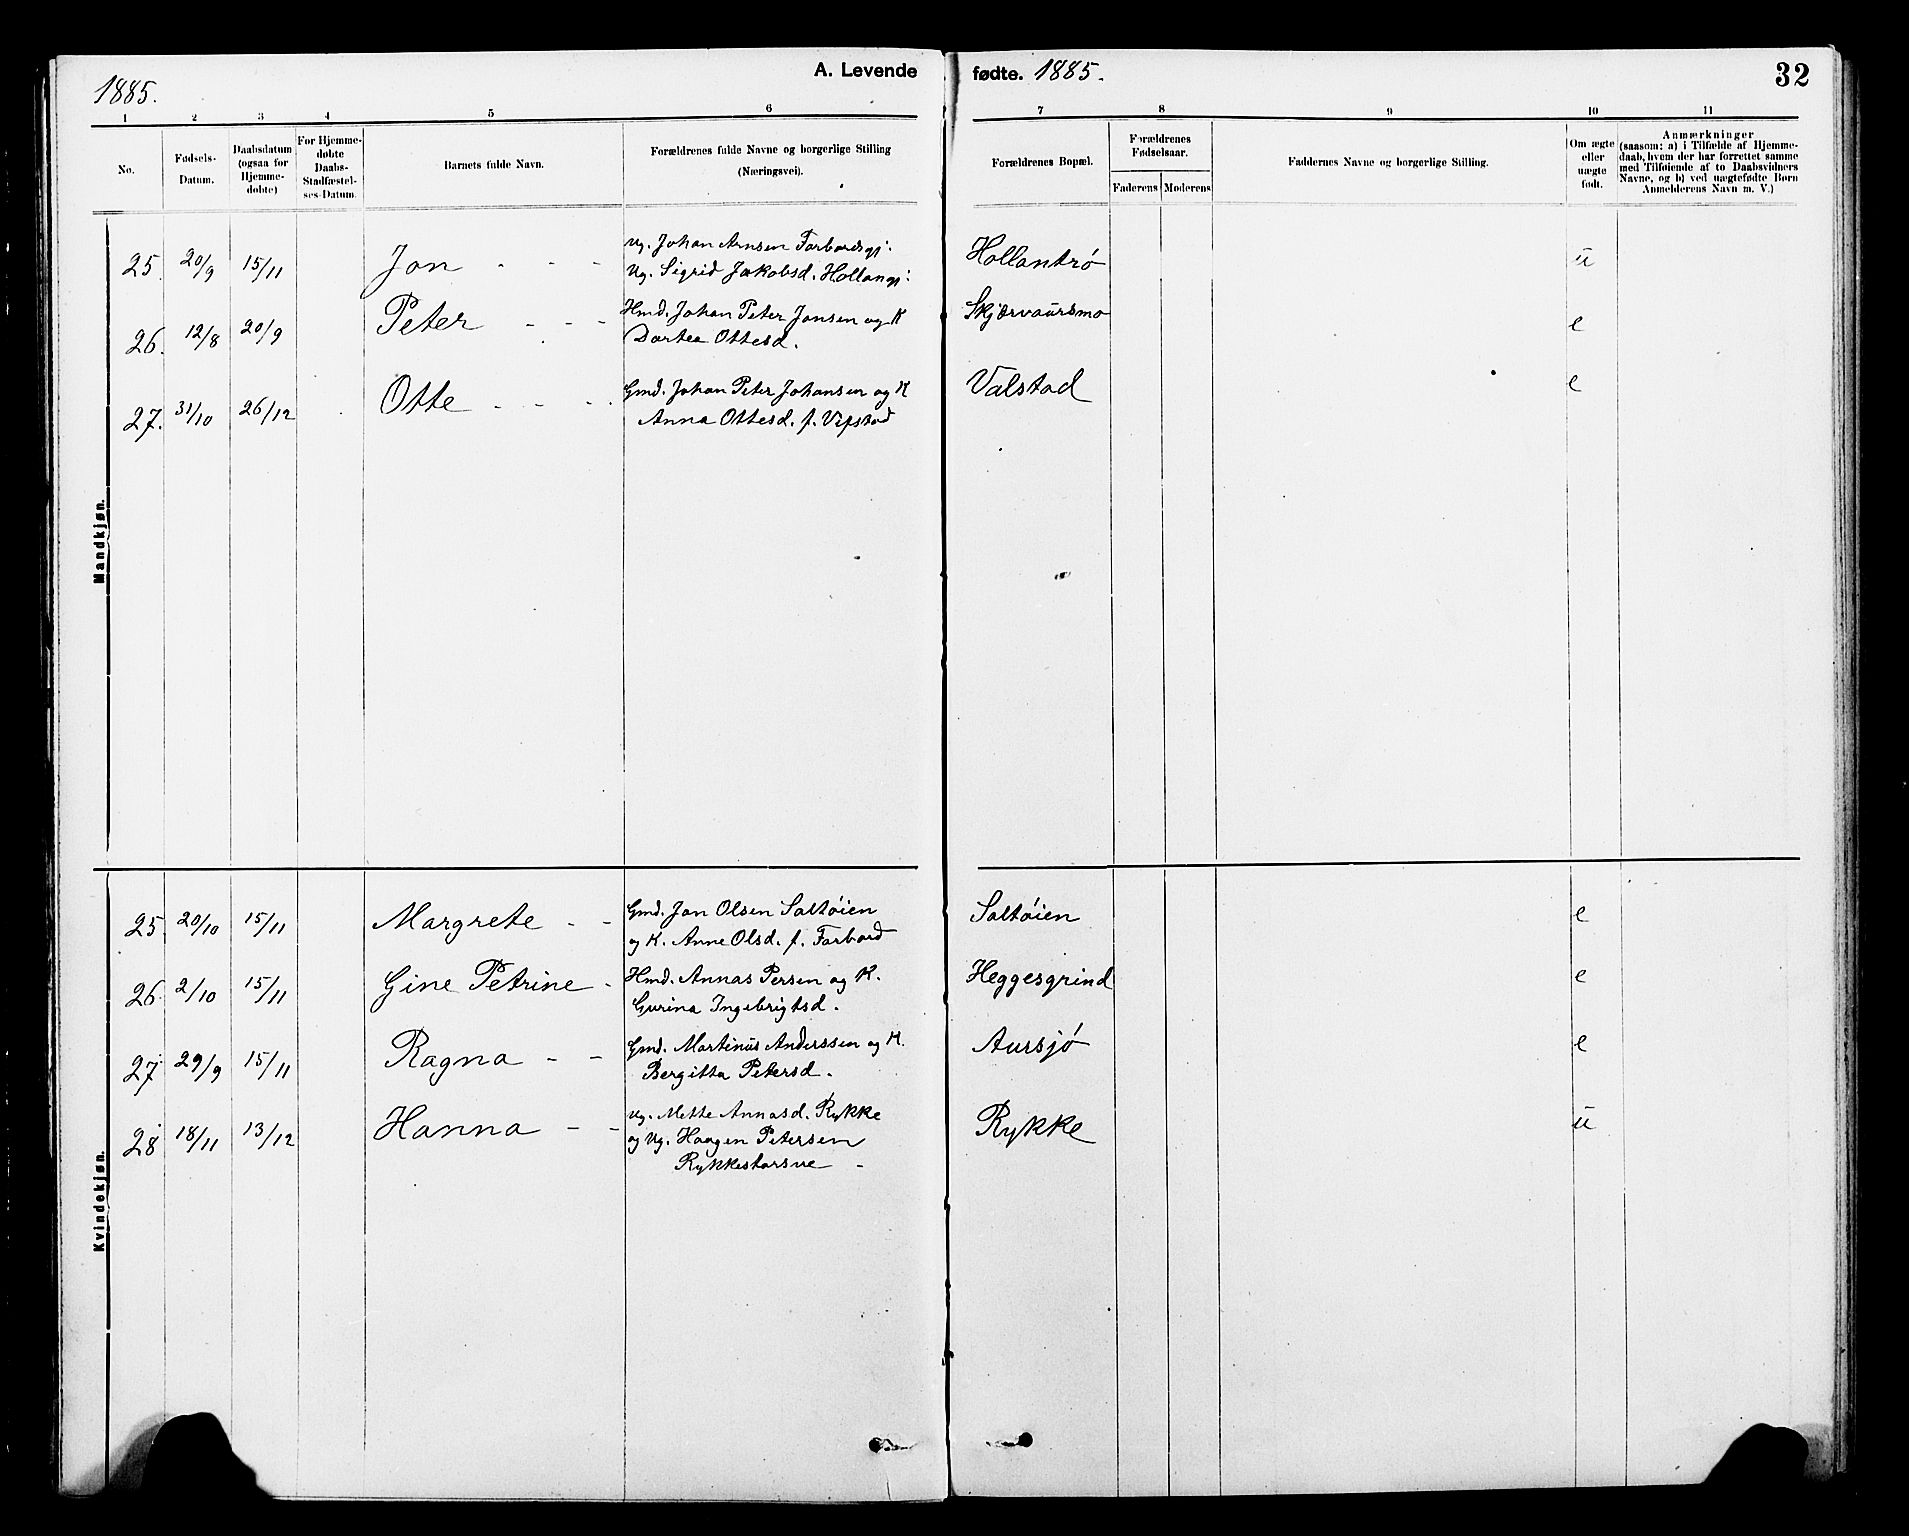 1885.
A. Levende fødte. 1885.
32
1 2 3 4 5 6 7 8 9 10 11
No.
Fødsels-
Datum.
Daabsdatum
(ogsaa for
Hjemme-
døbte)
For Hjemme-
døbte
Daabs-
Stadfæstel-
ses-Datum.
Barnets fulde Navn.
Forældrenes fulde Navne og borgerlige Stilling
(Næringsvei).
Forældrenes Bopæl.
Forældrenes
Fødselsaar.
Faderens Moderens
Faddernes Navne og borgerlige Stilling.
Om ægte
eller
uægte
født.
Anmærkninger
(saasom: a) i Tilfælde af Hjemme-
daab, hvem der har forrettet samme
med Tilføiende af to Daabsvidners
Navne, og b) ved uægtefødte Børn
Anmelderens Navn m. V.)
Mandkjøn.
25. 20/9 15/11 Jon - - - Ug. Johan Arnsen Forbordsgj. Hollantrø ü
Ug. Sigrid Jakobsd. Hollangj:
26. 12/8 20/9 Peter - - - Hmd. Johan Peter Jonsen og K Skjærvaursmo e
Dortea Ottesd.
27. 31/10 26/12 Otte - - - Gmd. Johan Peter Johansen og K Valstad e
Anna Ottesd. f.
Kvindekjøn.
25. 20/10 15/11 Margrete - - Gmd. Jon Olsen Saltøien Saltøien e
og K. Anne Olsd. f. Forbord
26 2/10 15/11 Gine Petrine - Hmd. Annas Persen og K. Heggesgrind e
Gurina Ingebrigtsd.
27 29/9 15/11 Ragna - - Gmd. Martinus Anderssen og K. Aursjø e
Bergitta Petersd.
28 18/11 13/12 Hanna - - Ug. Mette Annasd. Rykke Rykke ü
og Ug. Haagen Petersen